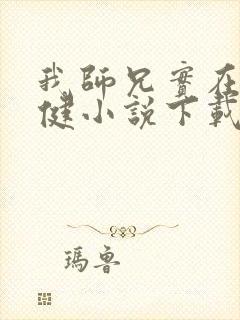 我師兄實在
健小說下載
瑪魯